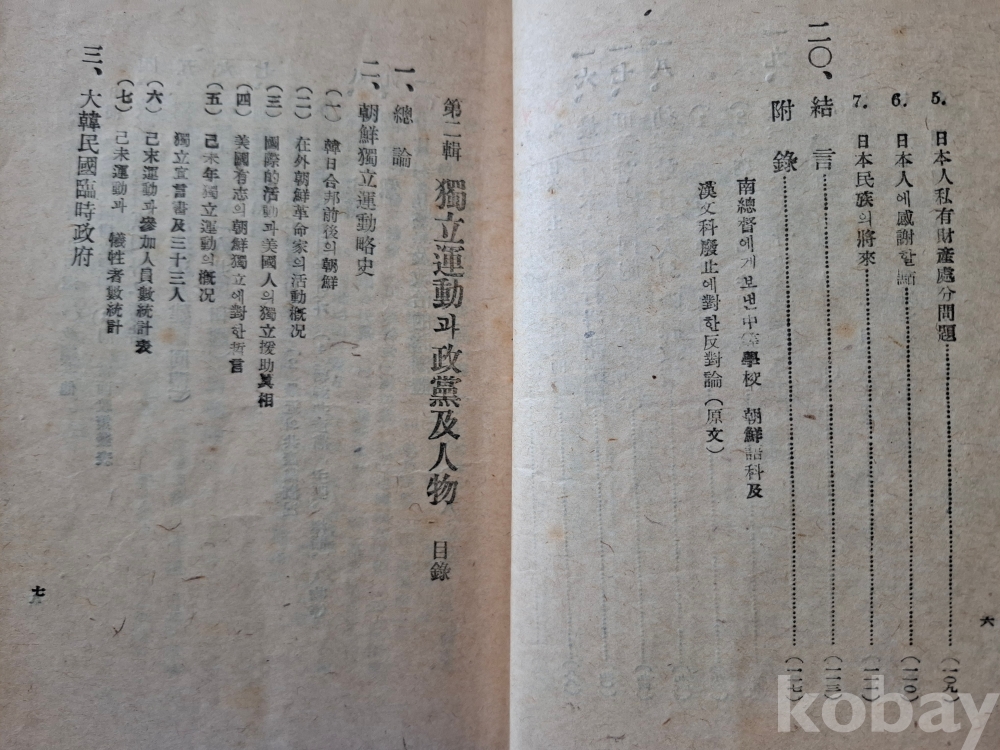 5. 日本人私有財產處分問題 (一〇九)
6. 日本人에感謝한 (一一〇)
7. 日本民族의將來 (一一一)
二〇、結言 (一一三)
附錄 (一一七)
南總督에게보낸中等學校 朝鮮語科及
漢文科廢止에對한反對論(原文)
六
第二輯 獨立運動과政黨及人物 目錄
一、總論
二、朝鮮獨立運動略史
(一) 韓日合邦前後의朝鮮
(二) 在外朝鮮革命家의活動槪况
(三) 國際的活動과美國人의獨立援助眞相
(四) 美國有志의朝鮮獨立에對한誓言
(五) 己未年獨立運動의槪况
獨立宣言書及三十三人
(六) 己未運動과參加人員數統計表
(七) 己未運動과 犧牲者數統計
三、大韓民國臨時政府
七
kobay